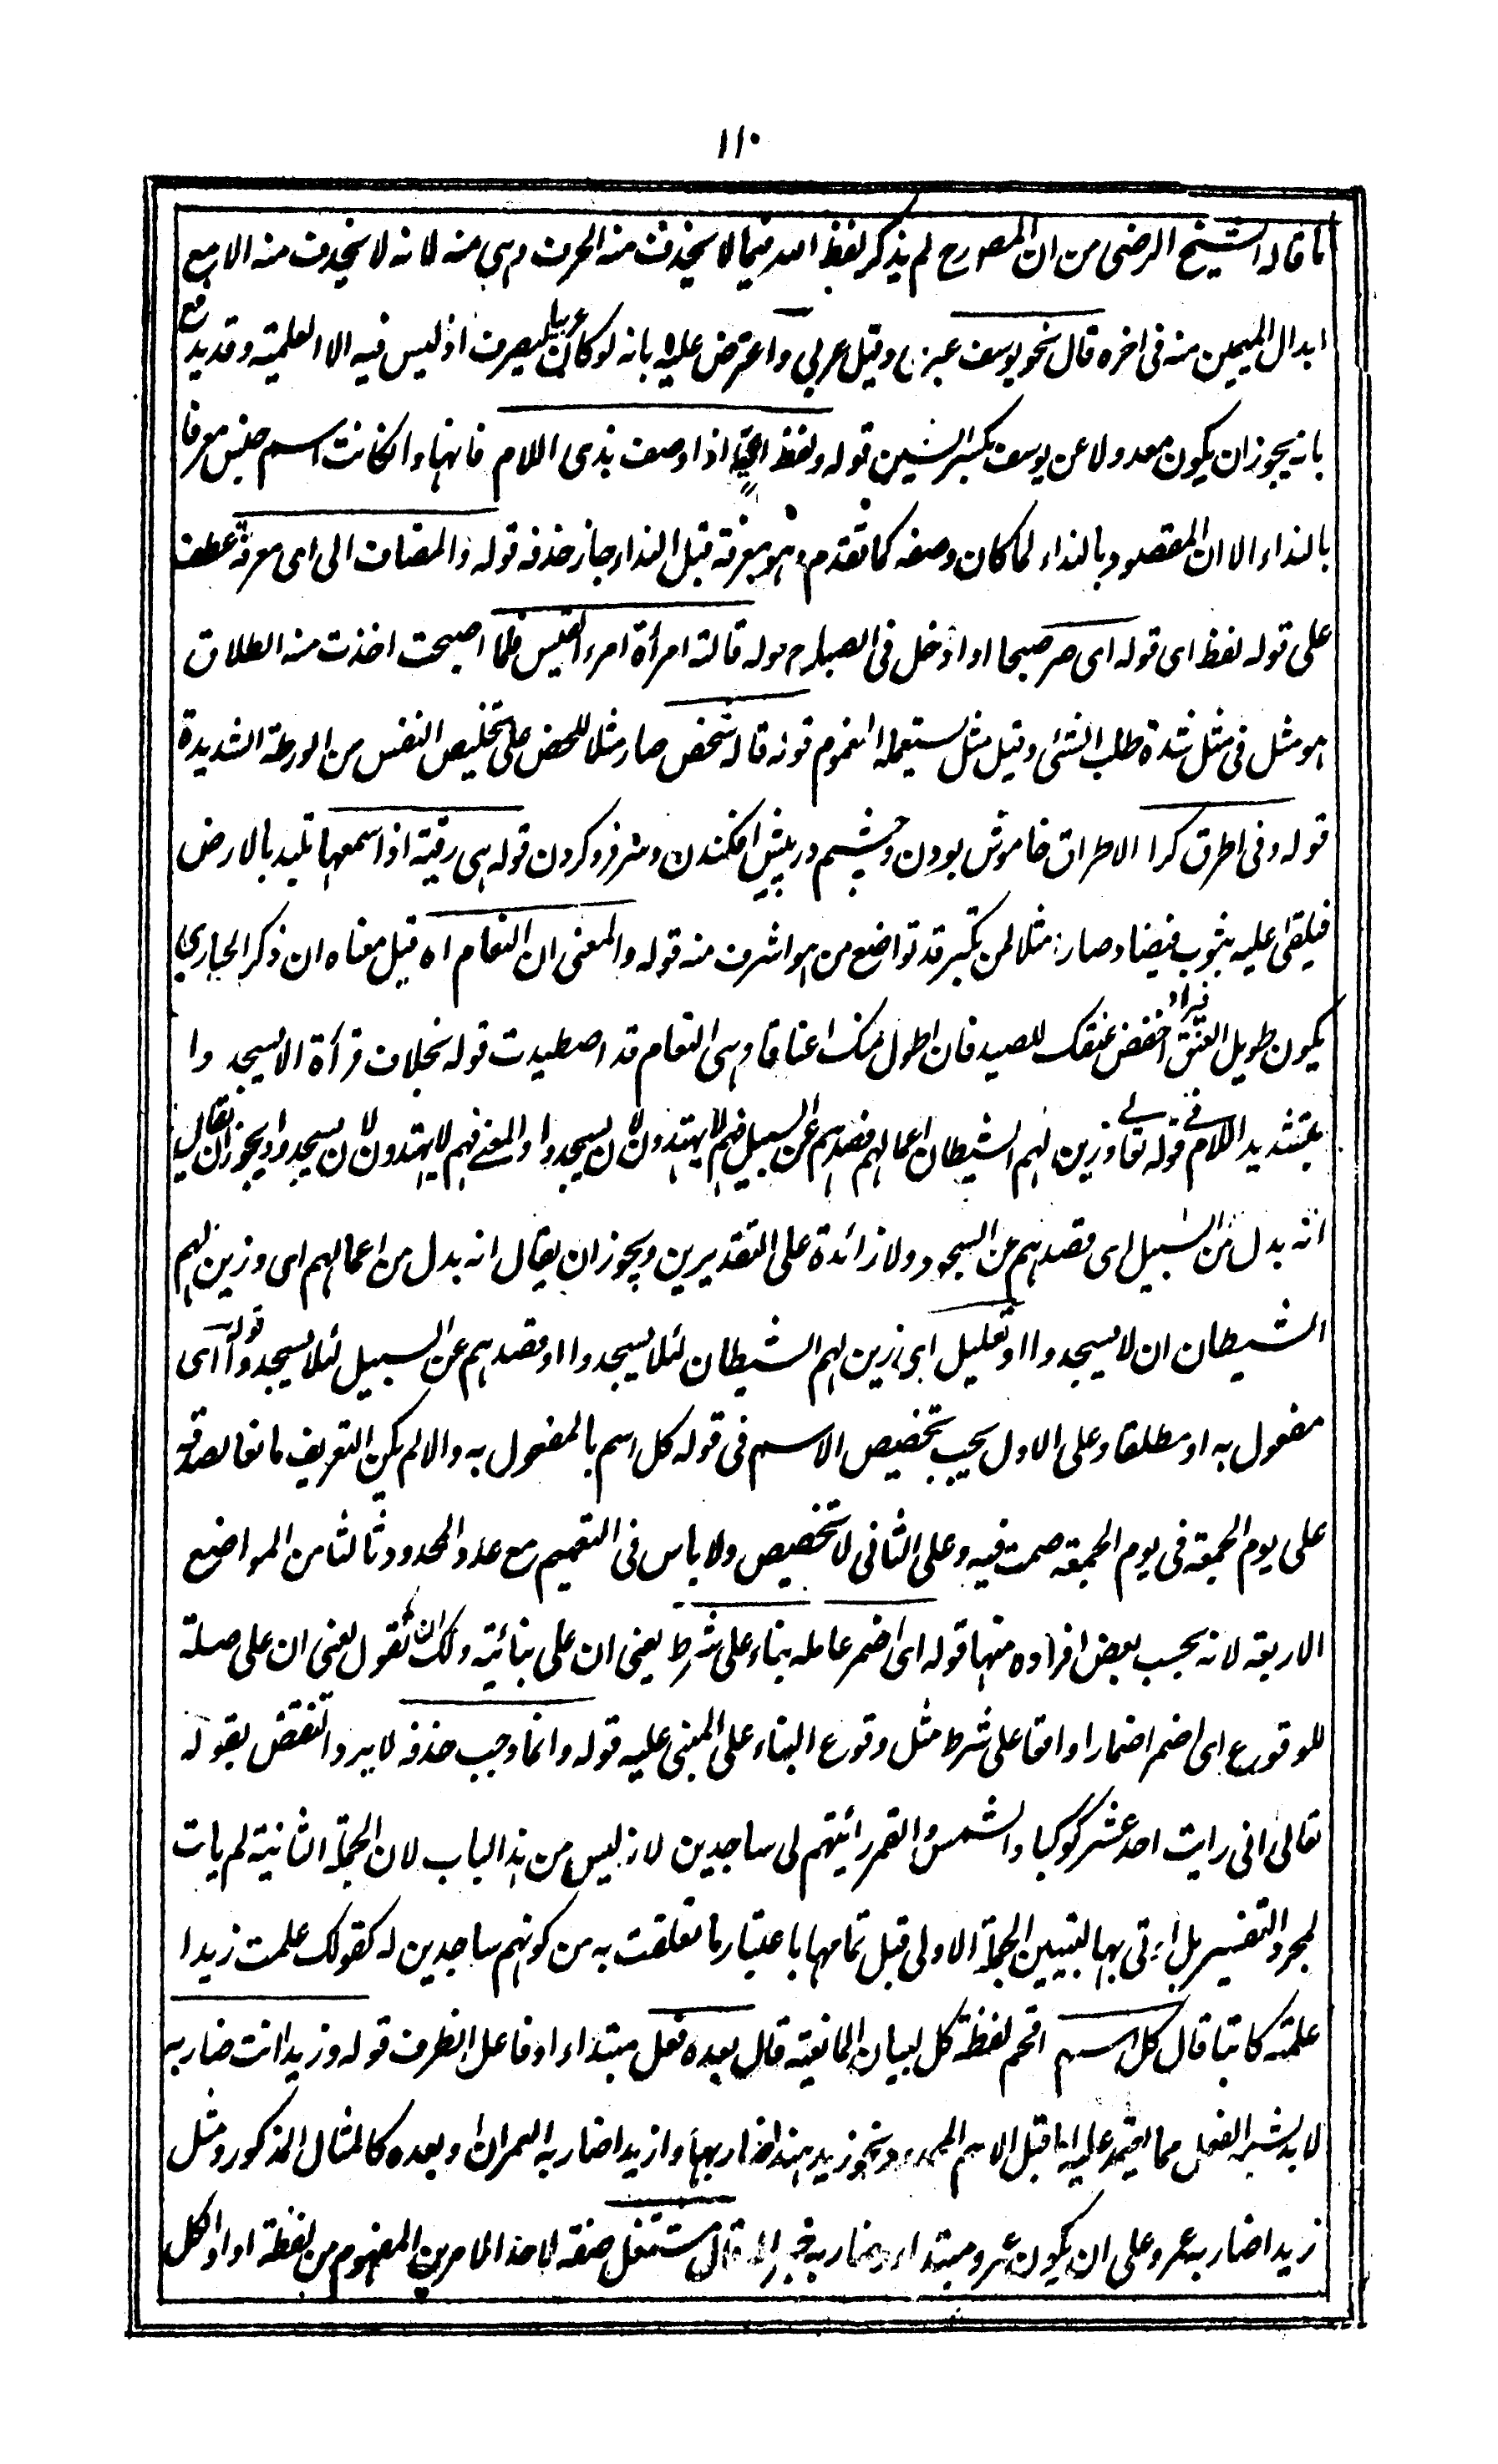 ١١٠
ما قاله الشيخ الرضى من ان المصورح لم يذكر لفظ الله فيما لا يحذف منه الحرف وهي منه لانه لا يحذف منه الا مع
ابدال الميمين منه فى اخره قال نحو يوسف عبرى وقيل عربي واعترض عليه بانه لو كان عربيا ليصرف اذ ليس فيه الا العلمية وقد يدفع
بانه يجوز ان يكون معدولا عن يوسف بكسر السين قوله ولفظ اذا وصف بذى اللام فانها وان كانت اسم جنس معرفا
بالنداء الا ان المقصود بالنداء لما كان وصفه كما تقدم وهو معرفة قبل النداء جاز حذفه قوله والمضاف الى اى معرفة عطف
على قوله لفظ اى قوله اى صر صبحا او ادخل فى الصباح قوله قالته امرأة امرء القيس فلما اصبحت اخذت منه الطلاق
هو مثل فى مثل شدة طلب الشئ وقيل مثل يستعمله المغموم قوله قاله شخص صار مثلا للحض على تخليص النفس من الورطة الشديدة
قوله وفى اطرق كرا الاطراق خاموش بودن وچشم در پيش افكندن وسر فرو كردن قوله هى رقية اذا سمعها تلبد بالارض
فيلقى عليه بثوب فيصاد وصار مثلا لمن تكبر قد تواضع من هو اشرف منه قوله والمعنى ان النعام اه قيل معناه ان ذكر الحبارى
يكون طويل العنق فيراد اخفض عنقك للصيد فان اطول منك اعناقا وهى النعام قد اصطيدت قوله بخلاف قرأة الا يسجدوا
بتشديد اللام فى قوله تعالى وزين لهم الشيطان اعمالهم فصدهم عن السبيل فهم لا يهتدون الا يسجدوا والمعنى فهم لا يهتدون لان يسجدوا ويجوز ان يقال
انه بدل من السبيل اى فصدهم عن السجود ولا زائدة على التقديرين ويجوز ان يقال انه بدل من اعمالهم اى وزين لهم
الشيطان ان لا يسجدوا او تعليل اى زين لهم الشيطان لئلا يسجدوا او فصدهم عن السبيل لئلا يسجدوا قوله اى
مفعول به او مطلقا وعلى الاول يجب تخصيص الاسم فى قوله كل اسم بالمفعول به والا لم يكن التعريف مانعا لصدقه
على يوم الجمعة فى يوم الجمعة صمت فيه وعلى الثانى لا تخصيص ولا باس فى التعميم مع عد المحدود ثالثا من المواضع
الاربعة لانه بحسب بعض افراده منها قوله اى اضمر عامله بناء على شرط يعنى ان على بنائية ولك ان تقول يعنى ان على صلة
للوقوع اى اضمر اضمارا واقعا على شرط مثل وقوع البناء على المبنى عليه قوله وانما وجب حذفه لا يرد النقض بقوله
تعالى انى رايت احد عشر كوكبا والشمس والقمر رأيتهم لى ساجدين لانه ليس من هذا الباب لان الجملة الثانية لم يات
لمجرد التفسير بل اوتى بها لتبيين الجملة الاولى قبل تمامها باعتبار ما تعلقت به من كونهم ساجدين له كقولك علمت زيدا
علمته كاتبا قال كل اسم اقحم لفظة كل لبيان المانعية قال بعده فعل مبتداء او فاعل الظرف قوله وزيدا انت ضاربه
لا بد لشبه الفعل مما يعتمد عليه اما قبل الاسم نحو زيد هندا ضاربها وازيدا ضاربه العمران وبعده كالمثال المذكور ومثل
زيدا ضاربه عمرو على ان يكون عمرو مبتداء وضاربه خبرا له قال مشتغل صفة لاحد الامرين المفهوم من لفظة او او لكل